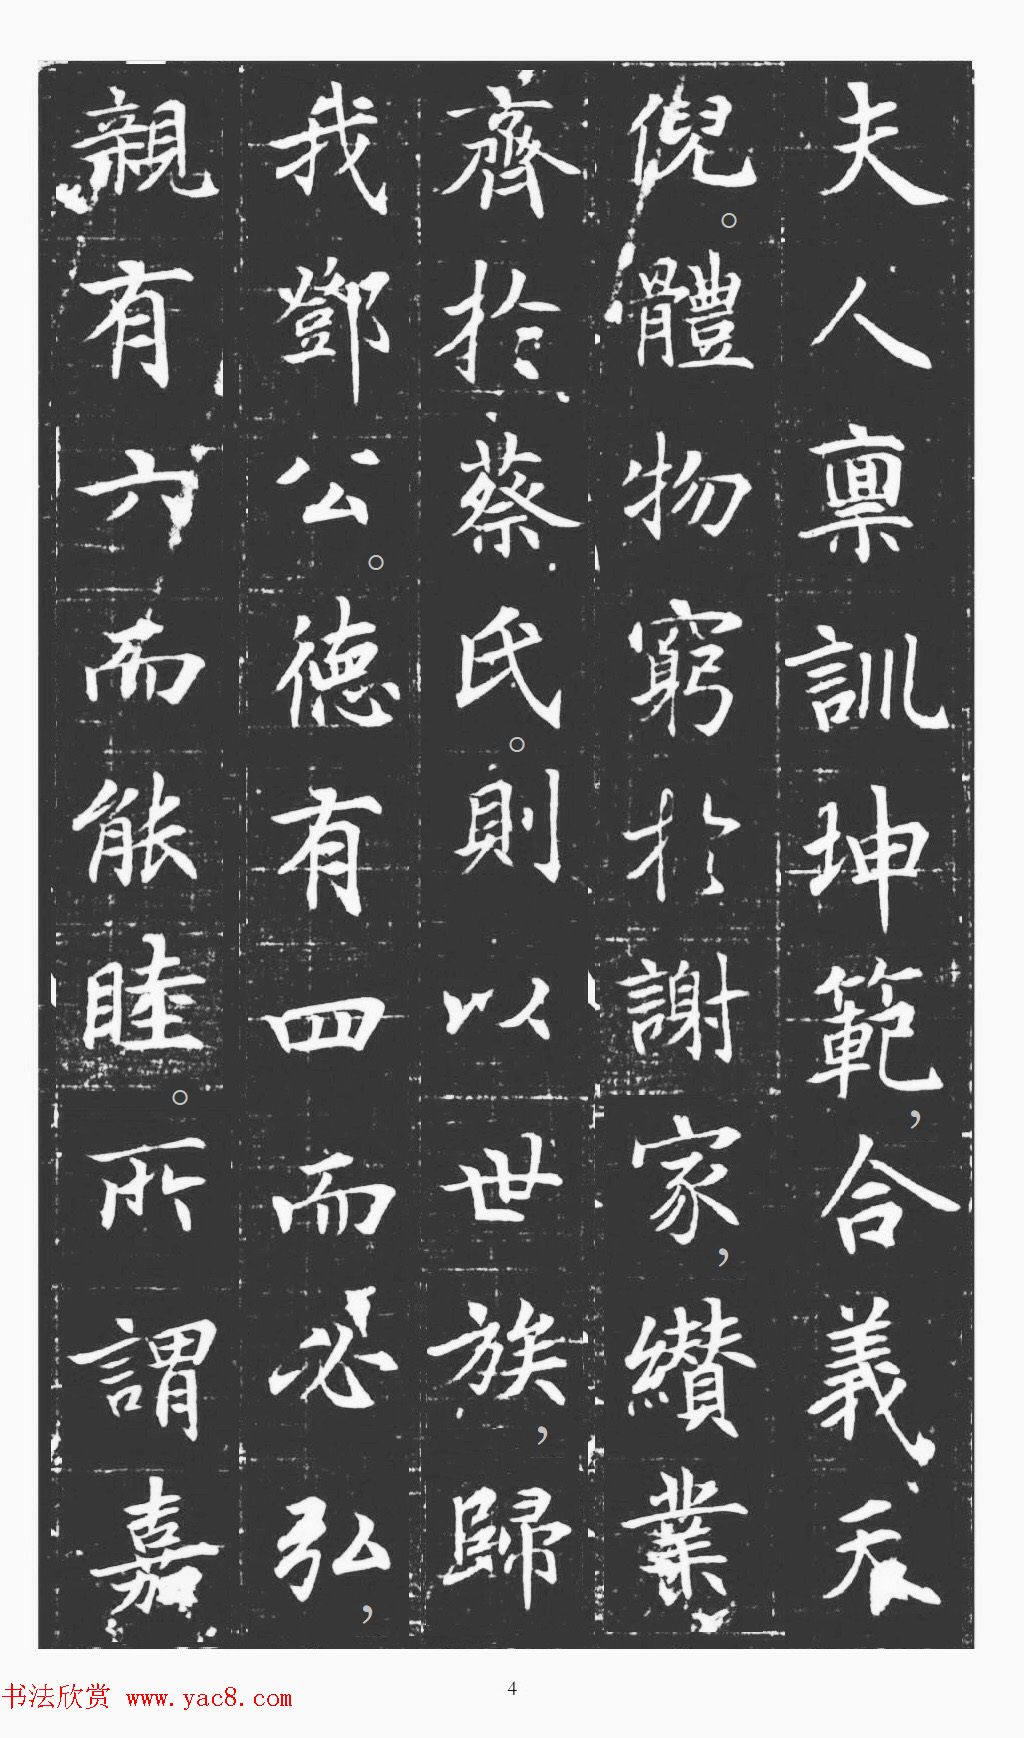 夫人禀訓坤範，合義天
倪。體物窮於謝家，纘業
齊於蔡氏。則以世族，歸
我鄧公。德有四而必弘，
親有六而能睦。所謂嘉
书法欣赏 www.yac8.com
4